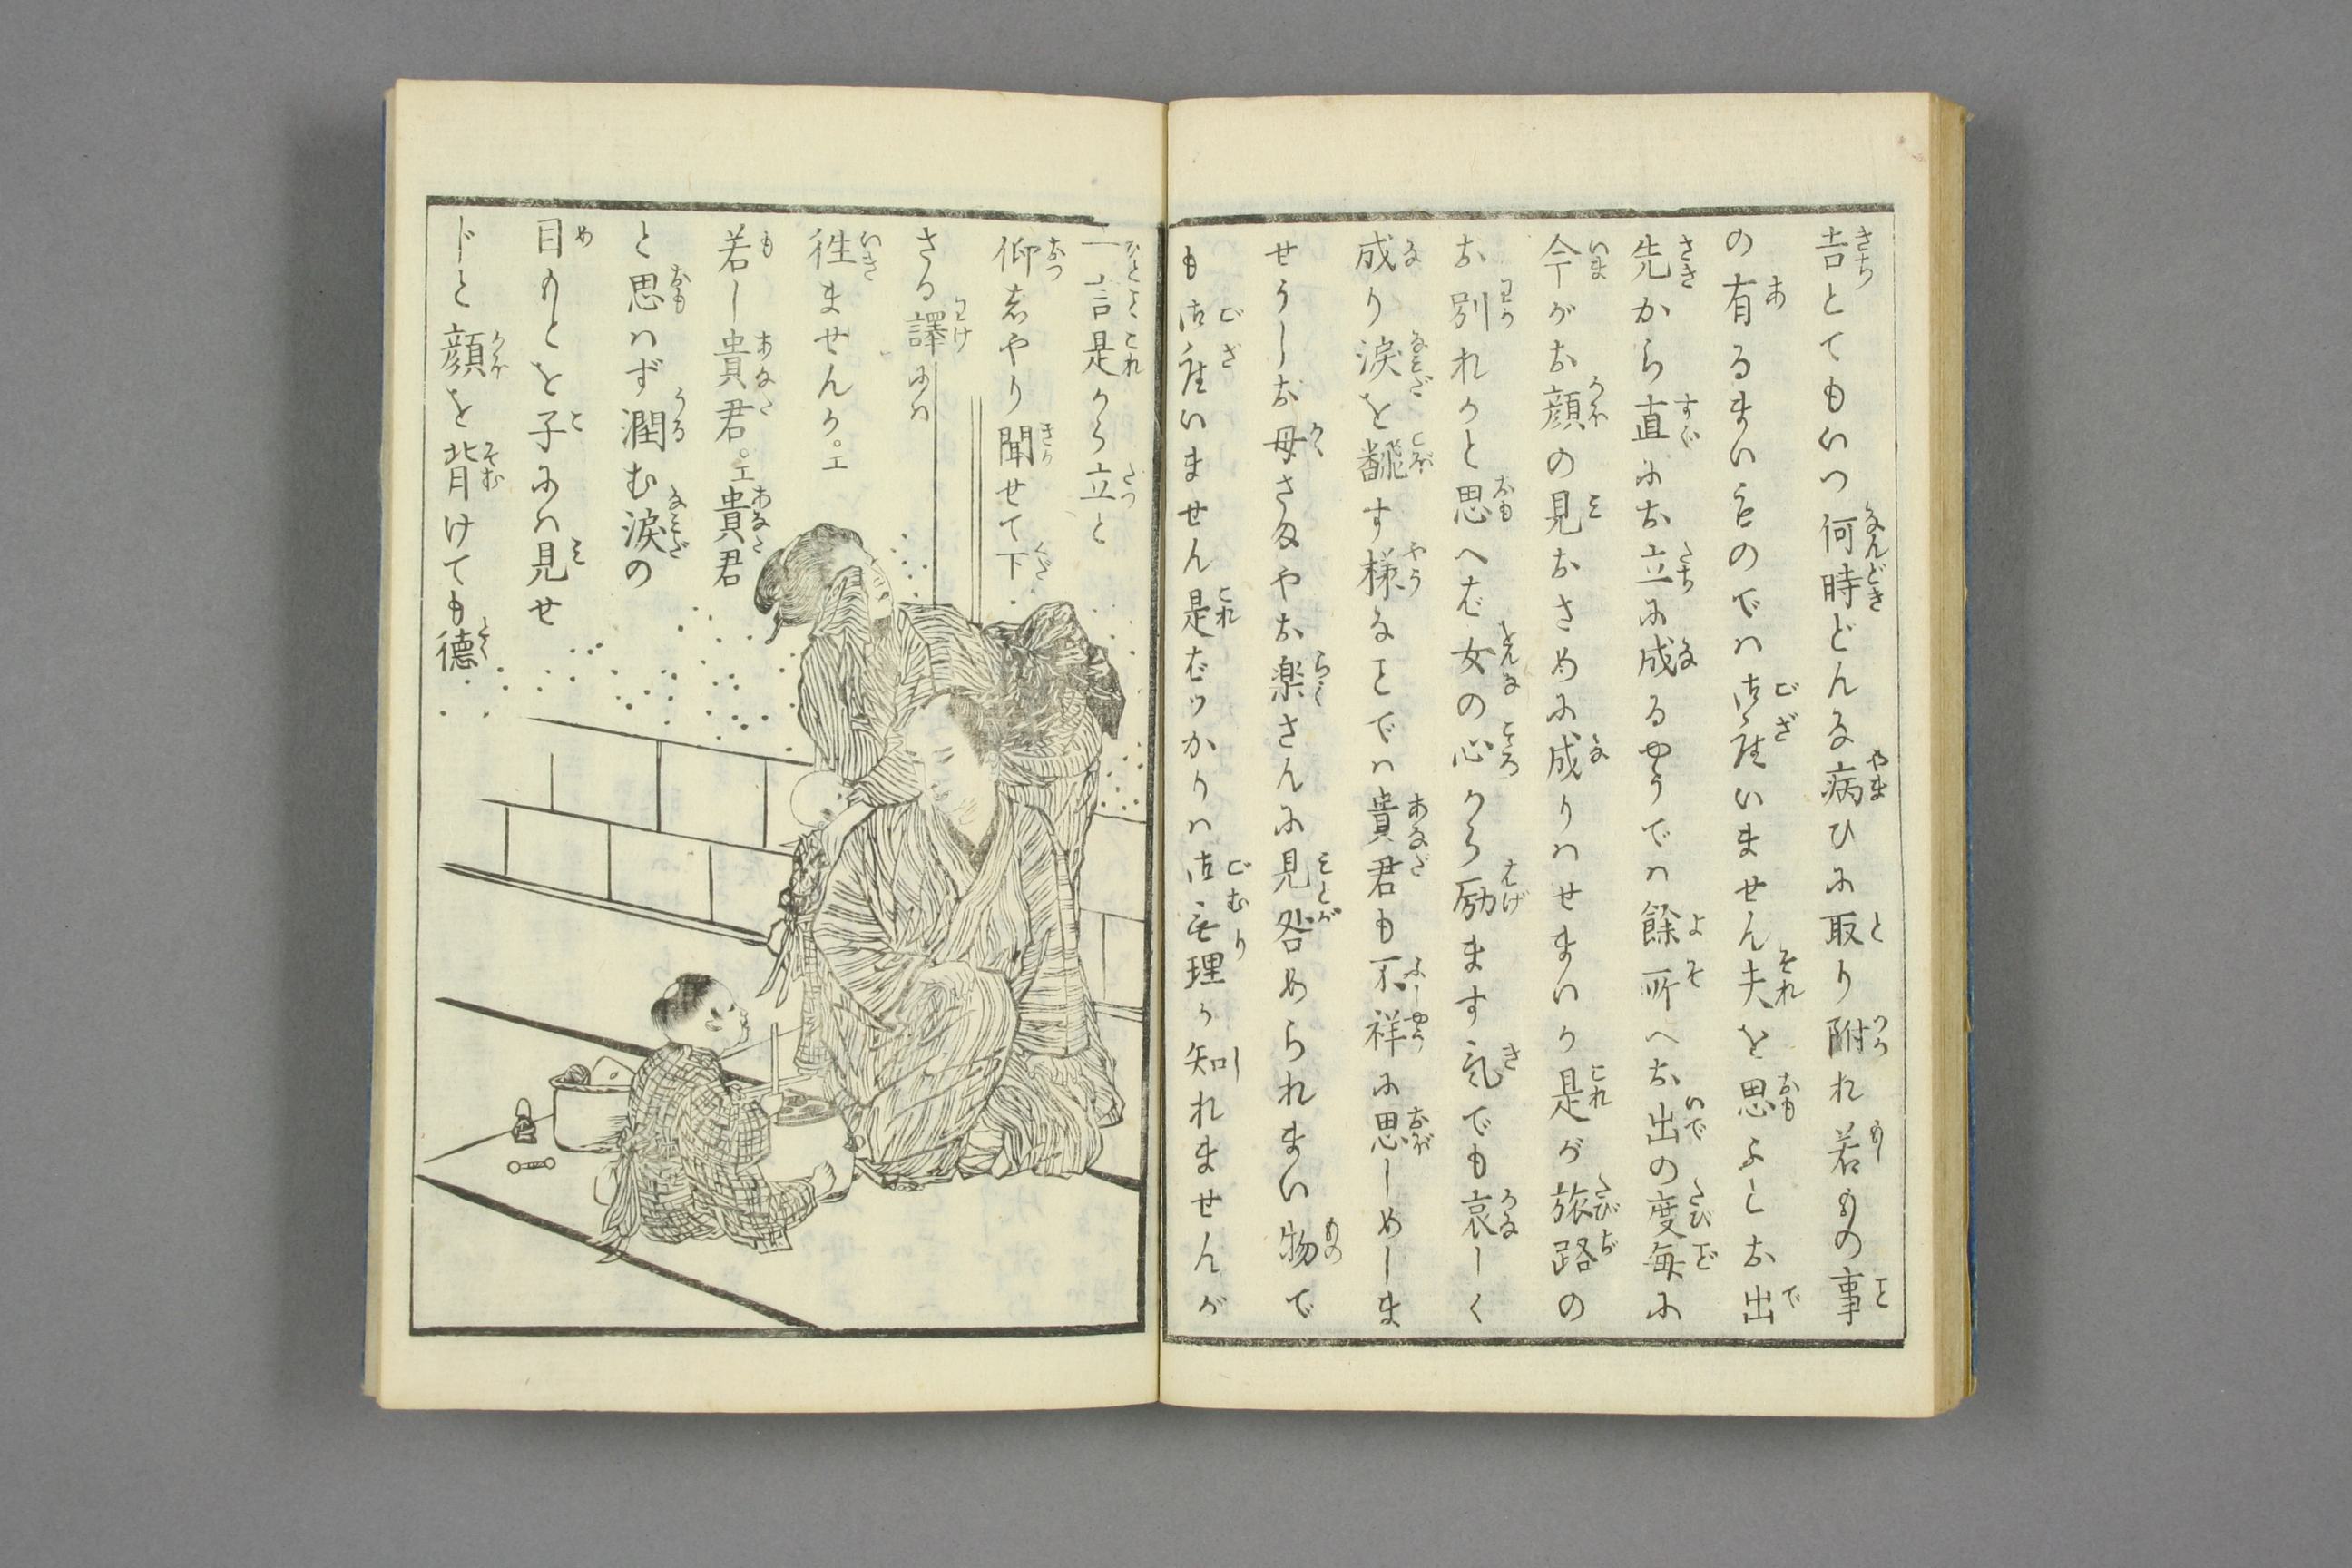 吉とてもいつ何時どんな病ひに取り附れ若もの事
の有るまいものでハ御座いません夫を思ふとお出
先から直にお立に成るやうでハ餘所へお出の度毎に
今がお顔の見おさめに成りハせまいか是が旅路の
お別れかと思へば女の心から励ます気でも哀しく
成り涙を飜す様なことでハ貴君も不祥に思しめしま
せうしお母さまやお楽さんに見咎められまい物で
も御座いません是ばツかりハ御無理か知れませんが
一言是から立と
仰しやり聞せて下
さる譯にハ
徃ませんか。エ
若し貴君。エ貴君
と思ハず潤む涙の
目もとを子にハ見せ
じと顔を背けても徳